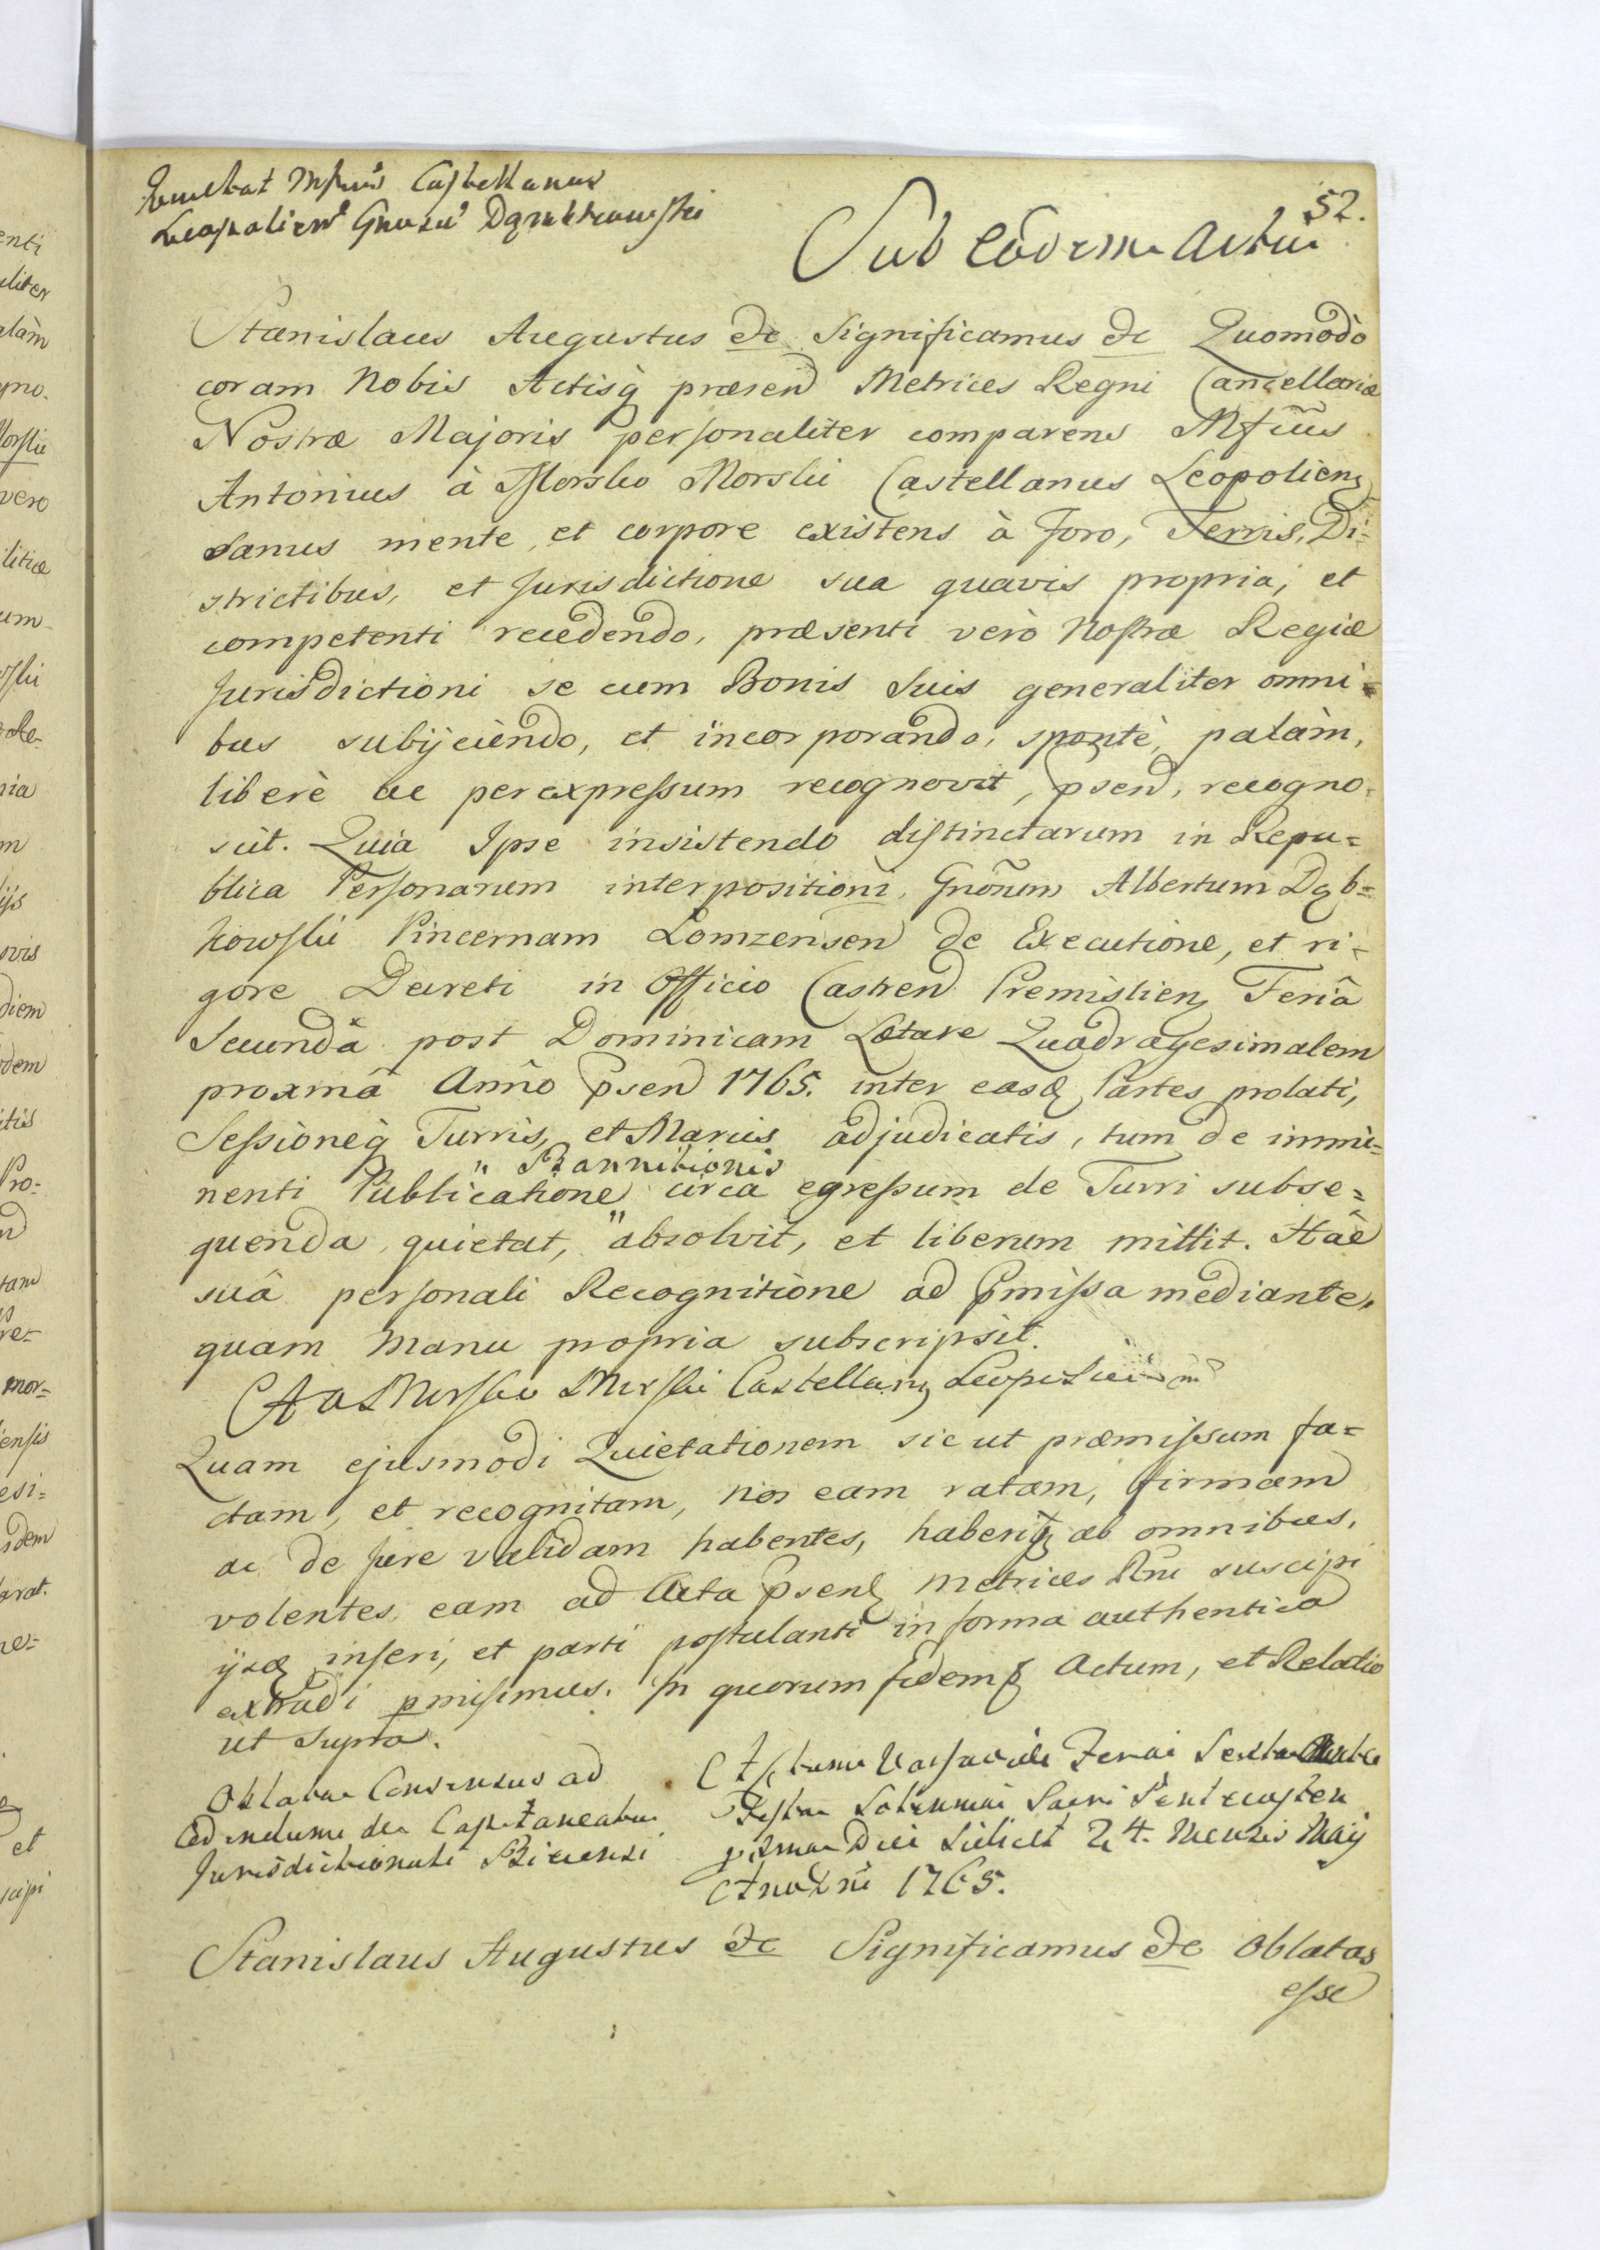 52.
Castellanus
Leopolien Gnosu Dąmbkowski
Sub Eodem Actu
Stanislaus Augustus &c Significamus &c Quomodò
coram Nobis Actisq̃ præsend Metrices Regni Cancellariæ
Nostræ Majoris personaliter comparens Mfcũs
Antonius à Morsko Morski Castellanus Leopolien,
sanus mente, et corpore existens à Foro, Terris, Di=
strictibus, et Jurisdictione sua quavis propria, et
competenti recedendo, præsenti verò Nostræ Regiæ
Jurisdictioni se cum Bonis Suis generaliter omni=
bus subijciendo, et incorporando, spontè, palàm,
liberè ac per expressum recognovit, psend, recogno=
scit. Quia Ipse insistendo distinctarum in Repu=
blica Personarum interpositioni, Gnõrum Albertum Dąb=
kowski Pincernam Lomzensen de Executione, et ri=
gore Decreti in Officio Castren Premislien, Feriâ
Secundâ post Dominicam Lætare Quadragesimalem
proximâ Anno psen 1765. inter easq Partes prolati,
Sessioneq̃ Turris, et Marcis adjudicatis, tum de immi=
" Bannitionis
nenti Publicatione circa egressum de Turri subse=
quenda, quietat, " absolvit, et liberum mittit. Hac
suâ personali Recognitione ad pmissa mediante,
quam Manu propria subscripsit.
A a Morsko Morski Castellan, Leopoliensis mp
Quam ejusmodi Quietationem sic ut præmissum fa=
ctam, et recognitam, Nos eam ratam, firmam
ac de Jure validam habentes, haberiq ab omnibus,
volentes, eam ad Acta psen Metrices Rni suscipi
ijsq inseri, et parti postulanti in forma authentica
extradi pmisimus. In quorum fidem & Actum, et Relatio
ut Supra.
Oblata Consensus ad
Cedendum de Capitaneatu
Jurisdictionali Biecensi
Actum Varsaviæ Feria Sexta Ante
Festa Solennia Sacri Pentecosten
pxma Die Scilicet 24. Mensis Maij
Anno Dni 1765.
Stanislaus Augustus &c Significamus &c Oblatas
esse